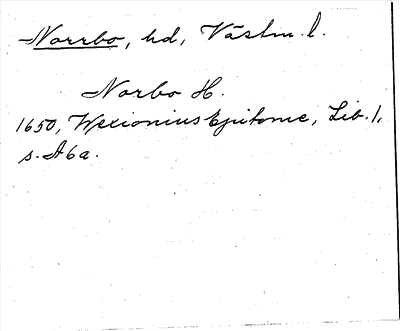 Norrbo, hd, Västm. l.
Norbo H.
1650, Wexionius Epitome, Lib. 1,
s. A6a.